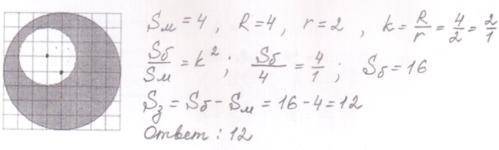 Sм = 4 , R = 4, r = 2 , k = R/r = 4/2 = 2/1
Sб/Sм = k² ; Sб/4 = 4/1 ; Sб = 16
Sз = Sб - Sм = 16 - 4 = 12
Ответ : 12